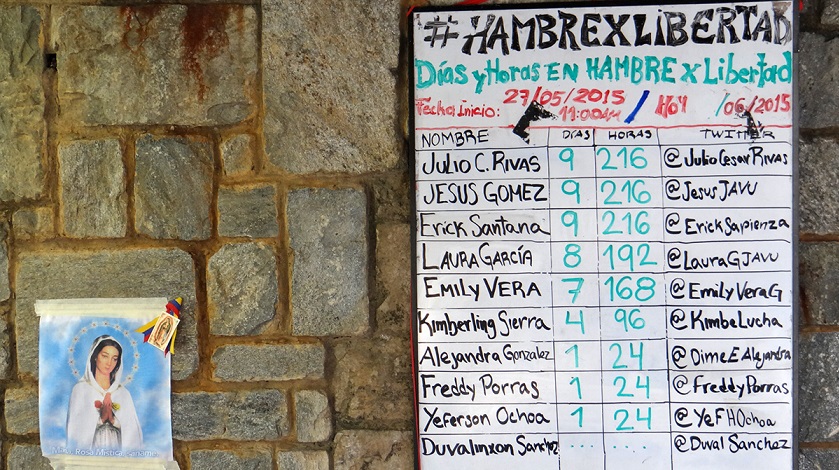 #HAMBREXLIBERTAD
Días y Horas EN HAMBRE x Libertad
Fecha Inicio: 27/05/2015 11:00am / Hoy /06/2015
NOMBRE DIAS HORAS TWITTER
JULIO C. RIVAS 9 216 @JulioCesarRivas
JESUS GOMEZ 9 216 @JesusJAVU
Erick Santana 9 216 @ErickSapienza
LAURA GARCÍA 8 192 @LauraGJAVU
EMILY VERA 7 168 @EmilyVeraG
Kimberling Sierra 4 96 @KimbeLucha
Alejandra Gonzalez 1 24 @DimeEAlejandra
Freddy Porras 1 24 @FreddyPorras
Yeferson Ochoa 1 24 @YeFHOchoa
Duvalinxon Sanchez ..... ..... @Duval Sanchez
Rosa Mística